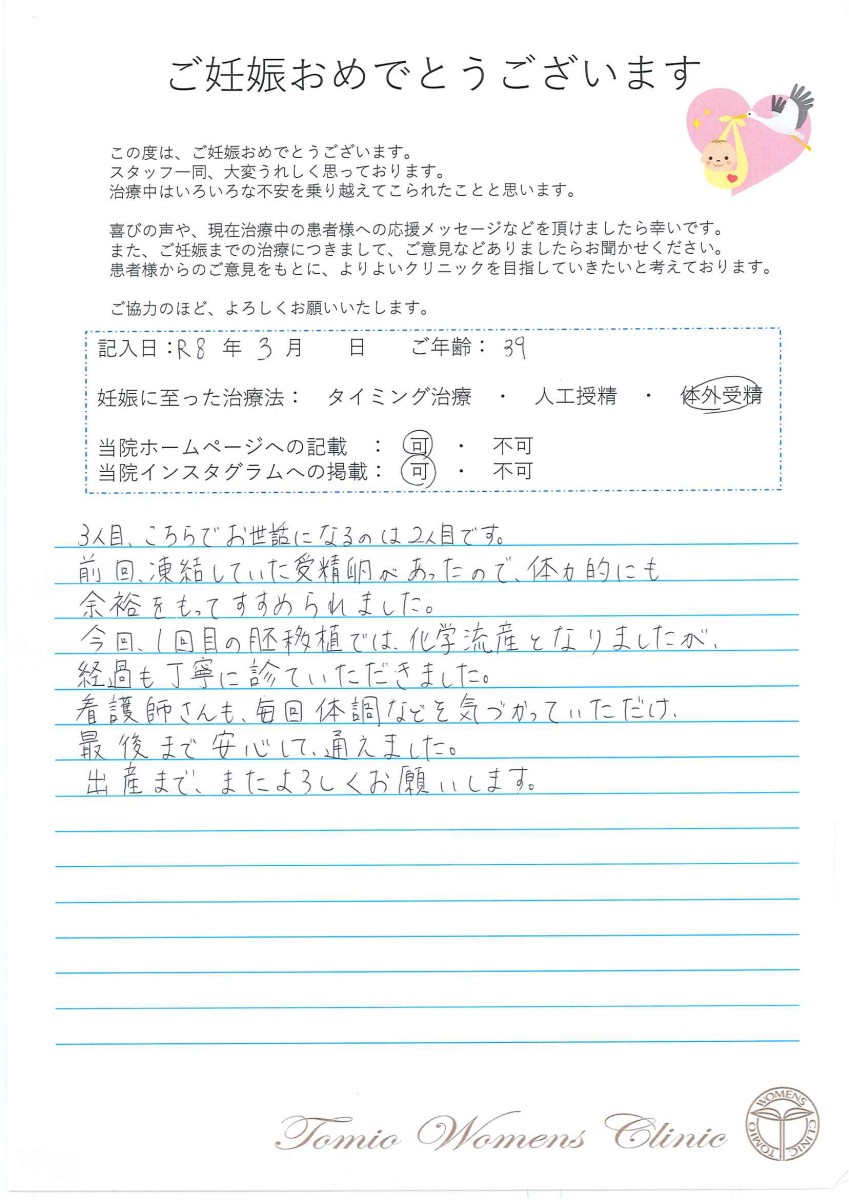 ご妊娠おめでとうございます
この度は、ご妊娠おめでとうございます。
スタッフ一同、大変うれしく思っております。
治療中はいろいろな不安を乗り越えてこられたことと思います。
喜びの声や、現在治療中の患者様への応援メッセージなどを頂けましたら幸いです。
また、ご妊娠までの治療につきまして、ご意見などありましたらお聞かせください。
患者様からのご意見をもとに、よりよいクリニックを目指していきたいと考えております。
ご協力のほど、よろしくお願いいたします。
記入日：R8 年 3 月 日 ご年齢： 39
妊娠に至った治療法： タイミング治療 ・ 人工授精 ・ 体外受精
当院ホームページへの記載 ： 可 ・ 不可
当院インスタグラムへの掲載： 可 ・ 不可
3人目、こちらでお世話になるのは2人目です。
前回、凍結していた受精卵があったので、体力的にも
余裕をもってすすめられました。
今回、1回目の胚移植では、化学流産となりましたが、
経過も丁寧に診ていただきました。
看護師さんも、毎回体調などを気づかっていただけ、
最後まで安心して、通えました。
出産まで、またよろしくお願いします。
Tomio Womens Clinic
TOMIO WOMENS CLINIC